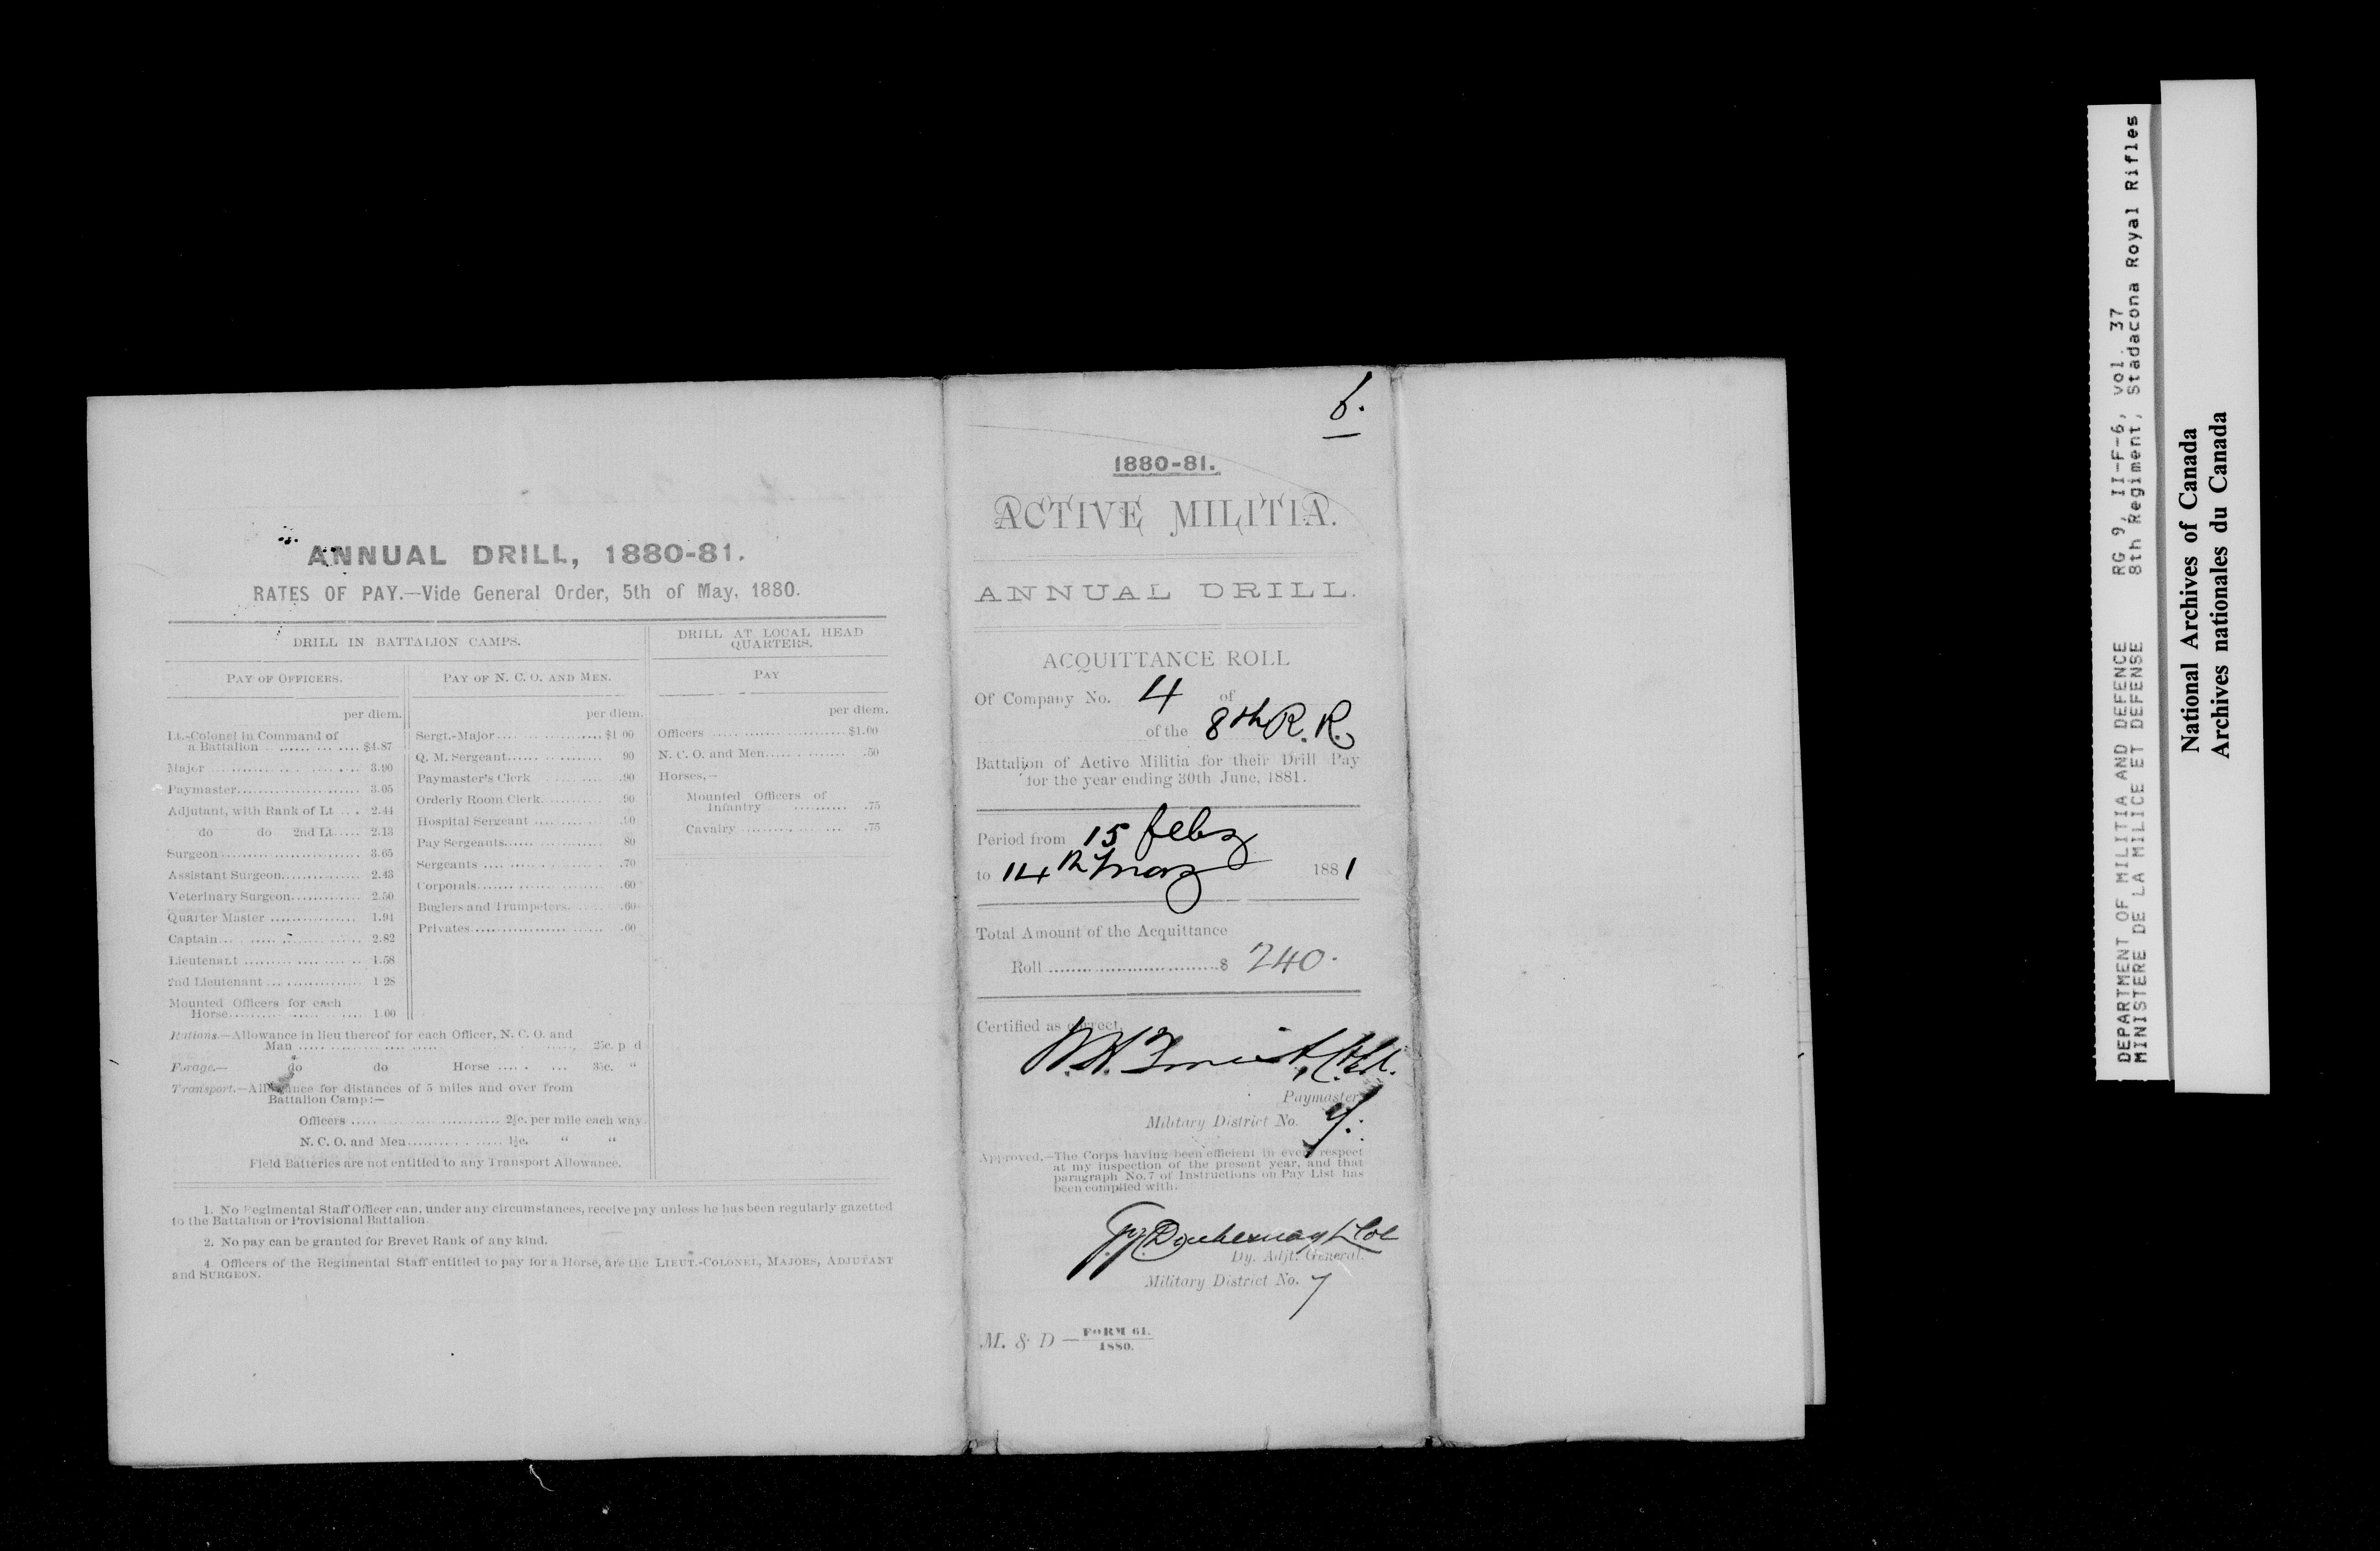 ANNUAL DRILL, 1880-81.
RATES OF PAY.—Vide General Order, 5th of May, 1880.
DRILL IN BATTALION CAMPS.
PAY OF OFFICERS.
per diem.
Lt.-Colonel in Command of
a Battalion ............ $4.87
Major ............ 3.90
Paymaster ............ 3.05
Adjutant, with Rank of Lt .... 2.44
do do 2nd Lt..... 2.13
Surgeon ............ 3.65
Assistant Surgeon ............ 2.43
Veterinary Surgeon ............ 2.50
Quarter Master ............ 1.94
Captain ............ 2.82
Lieutenant ............ 1.58
2nd Lieutenant ............ 1 28
Mounted Officers for each
Horse ............ 1.00
PAY OF N. C. O. AND MEN.
per diem.
Sergt.-Major ............ $1 00
Q. M. Sergeant ............ 90
Paymaster's Clerk ............ .90
Orderly Room Clerk ............ 90
Hospital Sergeant ............ .90
Pay Sergeants ............ 80
Sergeants ............ .70
Corporals ............ .60
Buglers and Trumpeters ............ .60
Privates ............ .60
DRILL AT LOCAL HEAD
QUARTERS.
PAY
per diem.
Officers ............ $1.00
N. C. O. and Men ............ .50
Horses,—
Mounted Officers of
Infantry ............ .75
Cavalry ............ .75
Rations.—Allowance in lieu thereof for each Officer, N. C. O. and
Man ............ 25c. p d
Forage.— do do Horse ............ 35c. “
Transport.—Allowance for distances of 5 miles and over from
Battalion Camp:—
Officers ............ 2½c. per mile each way
N. C. O. and Men ............ 1½c. “ “
Field Batteries are not entitled to any Transport Allowance.
1. No Regimental Staff Officer can, under any circumstances, receive pay unless he has been regularly gazetted
to the Battalion or Provisional Battalion
2. No pay can be granted for Brevet Rank of any kind.
4. Officers of the Regimental Staff entitled to pay for a Horse, are the LIEUT.-COLONEL, MAJORS, ADJUTANT
and SURGEON.
6.
1880-81.
ACTIVE MILITIA.
ANNUAL DRILL.
ACQUITTANCE ROLL
Of Company No. 4 of
of the 8th R. R.
Battalion of Active Militia for their Drill Pay
for the year ending 30th June, 1881.
Period from 15 feby
to 14th May 1881
Total Amount of the Acquittance
Roll ............ $ 240.
Certified as correct,
W. H.
Paymaster
Military District No. 7.
Approved.—The Corps having been efficient in every respect
at my inspection of the present year, and that
paragraph No. 7 of Instructions on Pay List has
been complied with.
Duchesnay Lt Col
Dy. Adjt. General.
Military District No. 7
M. & D — FORM 61.
1880.
DEPARTMENT OF MILITIA AND DEFENCE RG 9, II-F-6, vol. 37
MINISTERE DE LA MILICE ET DEFENSE 8th Regiment, Stadacona Royal Rifles
National Archives of Canada
Archives nationales du Canada